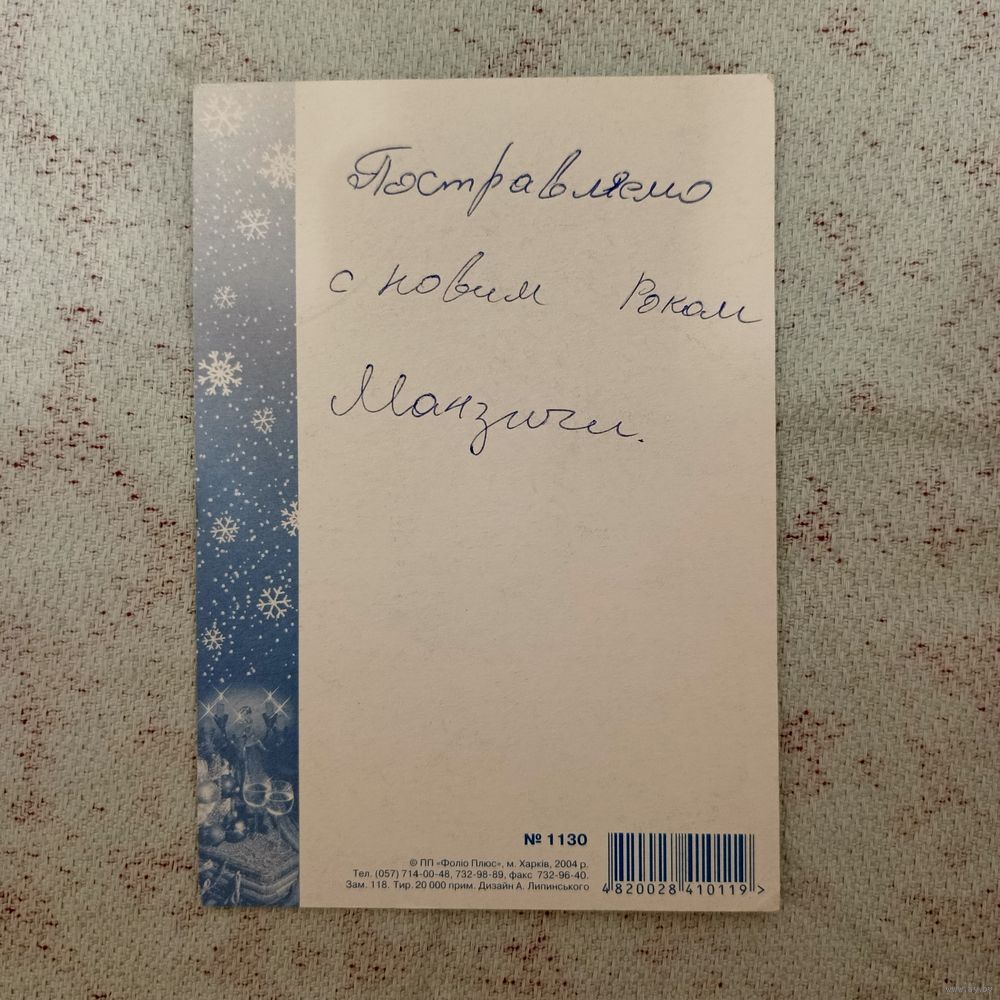 Постравляемо
с новим Роком
Манзичи.
№ 1130
© ПП «Фоліо Плюс», м. Харків, 2004 р.
Тел. (057) 714-00-48, 732-98-89, факс 732-96-40.
Зам. 118. Тир. 20 000 прим. Дизайн А. Липинського
4820028410119>
www.ay.by